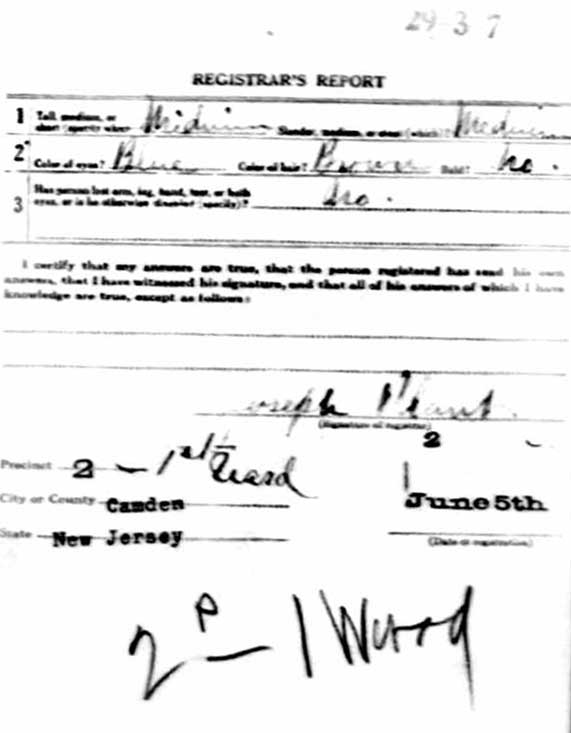 29-3-7
REGISTRAR'S REPORT
1 Tall, medium, or short (specify which)? Medium Slender, medium, or stout (which)? Medium
2 Color of eyes? Blue Color of hair? Brown Bald? No.
3 Has person lost arm, leg, hand, foot, or both eyes, or is he otherwise disabled (specify)? No.
I certify that my answers are true, that the person registered has read his own
answers, that I have witnessed his signature, and that all of his answers of which I have
knowledge are true, except as follows:
Joseph
(Signature of registrar)
2
Precinct 2 - 1st Ward
City or County Camden
June 5th
State New Jersey
(Date of registration)
2 P - 1 Ward